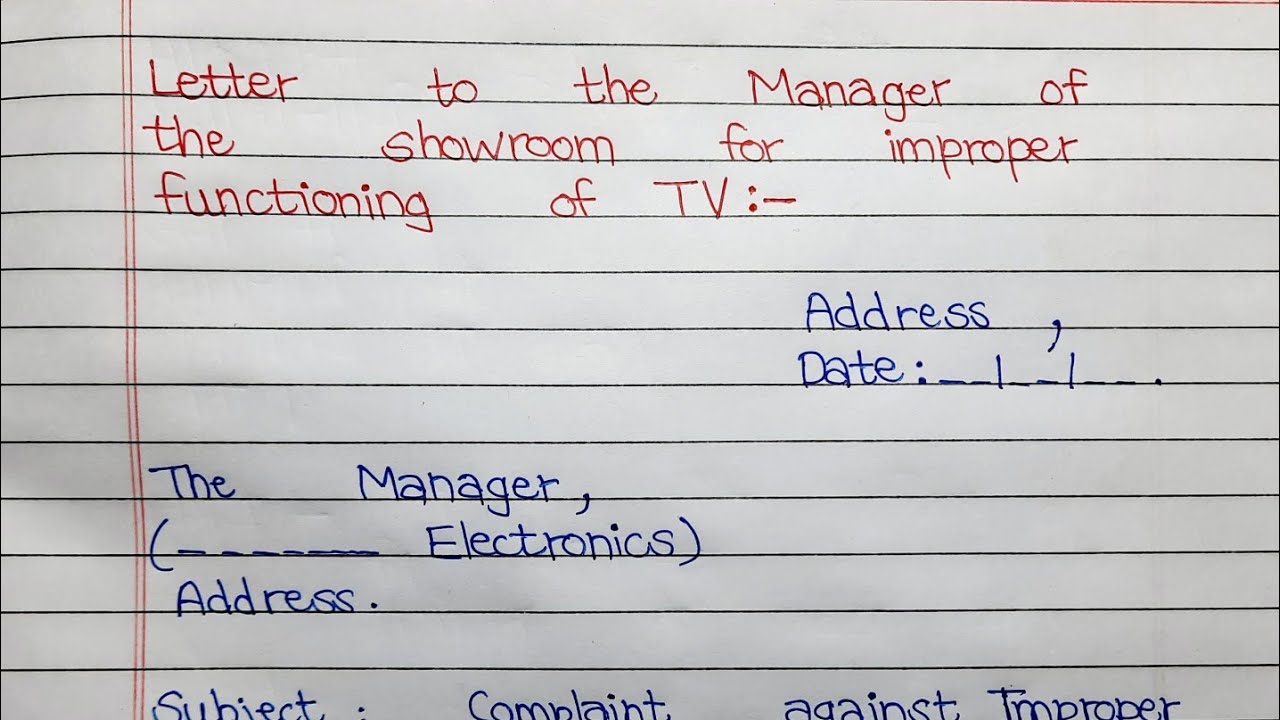 Letter to the Manager of
the showroom for improper
functioning of TV:-
Address ,
Date:__/__/__.
The Manager,
(_______ Electronics)
Address.
Subject : Complaint against Improper